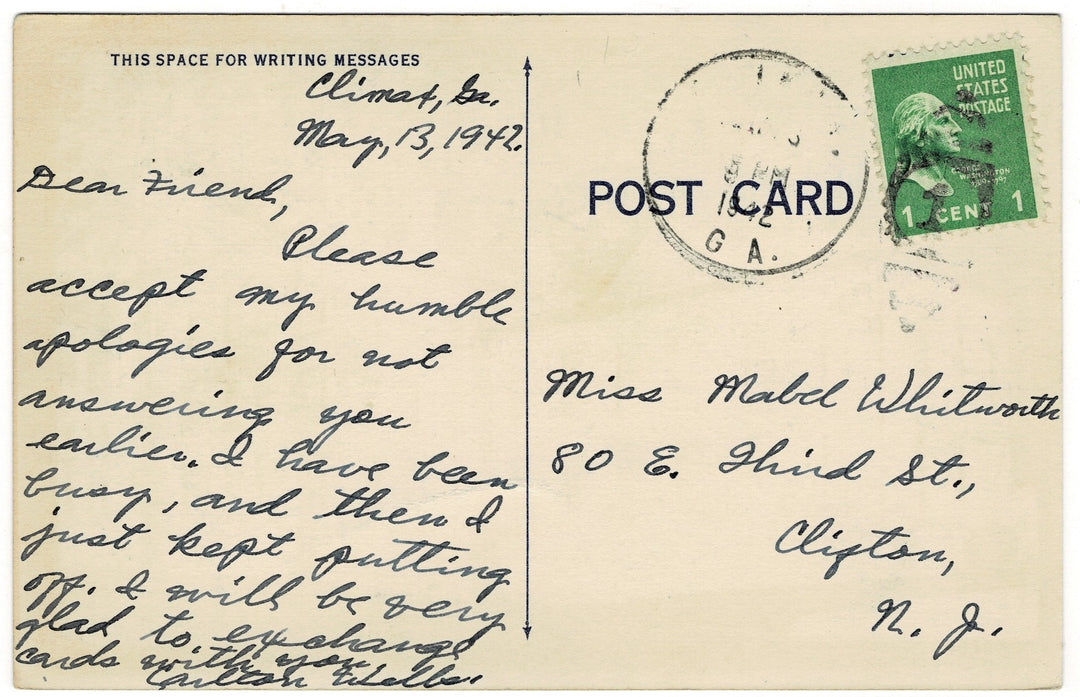 THIS SPACE FOR WRITING MESSAGES
Climax, Ga.
May, 13, 1942.
Dear Friend,
Please
accept my humble
apologies for not
answering you
earlier. I have been
busy, and then I
just kept putting
off. I will be very
glad to exchange
cards with you.
Carlton Wells.
POST CARD
1942
GA.
UNITED
STATES
POSTAGE
1 CENT 1
Miss Mabel Whitworth
80 E. Third St.,
Clifton,
N. J.